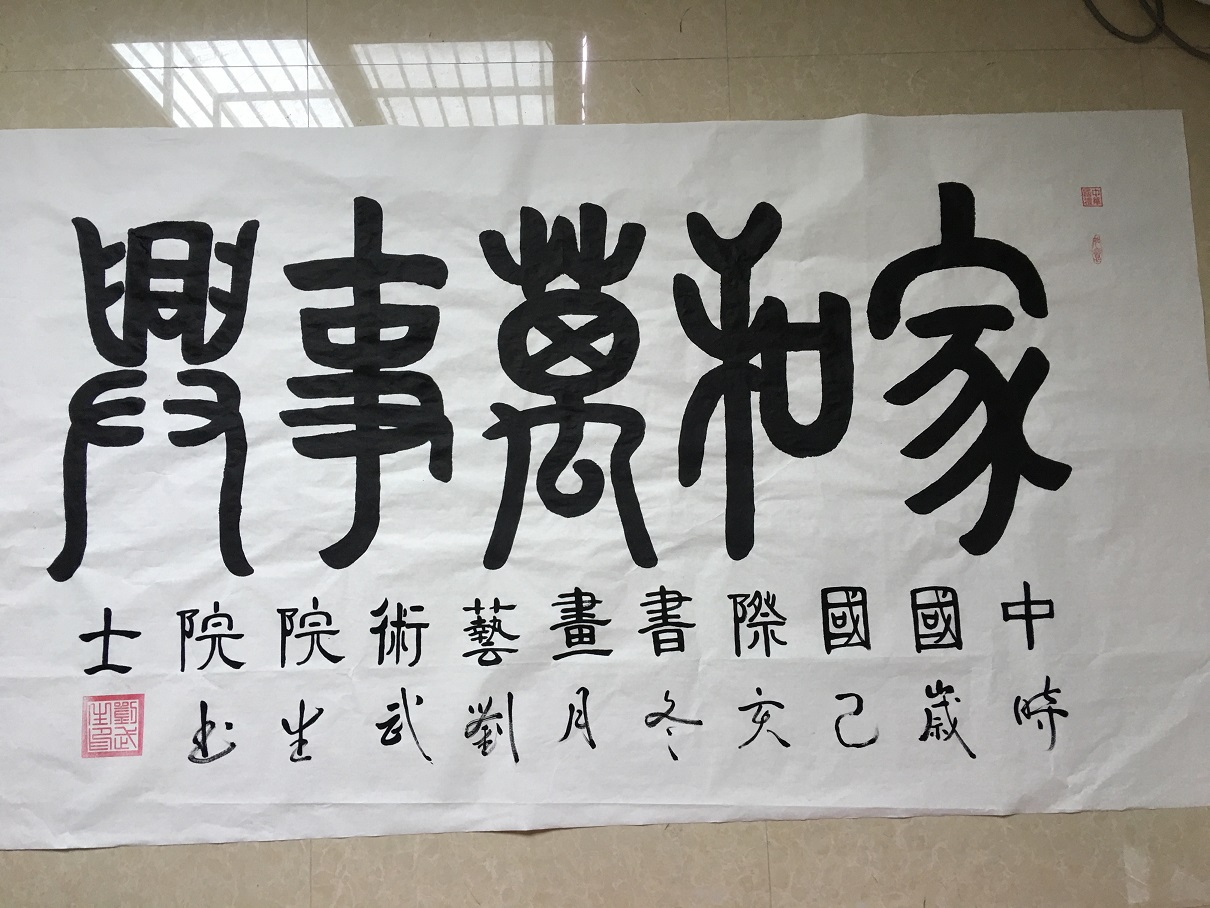 家和萬事興
中國國際書畫藝術院院士
時歲己亥冬月劉武生书
劉武生印